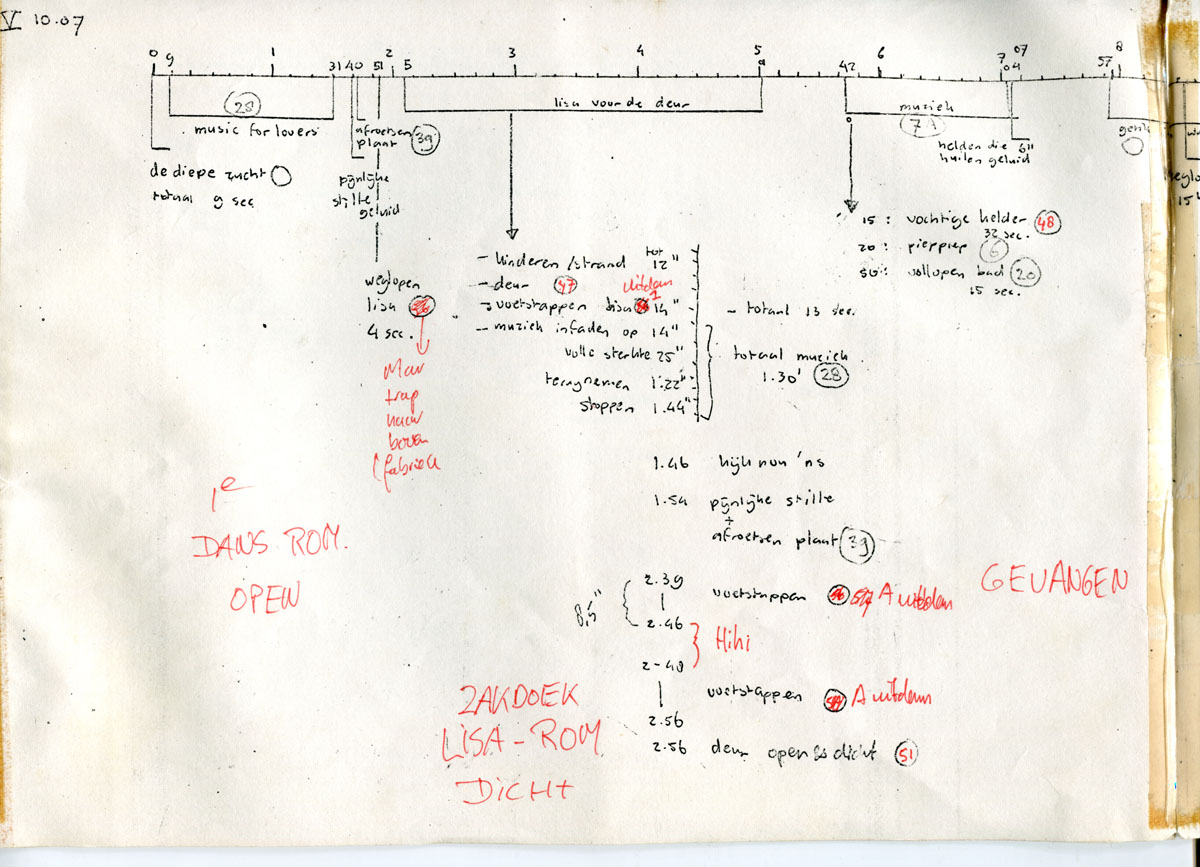 V 10.07
0 9 1 31 40 51 2 5 3 4 5 42 6 7 04 07 57 8
28
lisa voor de deur
muziek
7A
music for lovers
afroetsen
plaat
39
helden die 6"
huilen geluid
de diepe zucht
totaal 9 sec
pijnlijke
stilte
geluid
15 : vochtige helder 48
32 sec.
20 : pieppiep 6
50 : vollopen bad 20
15 sec.
weglopen
lisa
4 sec.
Mar
trap
naar
boven
(fabriek
- kinderen /strand tot 12"
- deur 47 uitdam
- voetstappen lisa 1 14"
- muziek infaden op 14"
volle sterkte 25"
terugnemen 1.22"
stoppen 1.44"
- totaal 13 sec.
totaal muziek
1.30' 28
1.46 kijk nou 'ns
1.54 pijnlijke stilte
+
afroetsen plaat 39
1e
DANS ROM.
OPEN
GEVANGEN
2.39
voetstappen A uitdam
8,5"
2.46
Hihi
2-49
voetstappen A uitdam
2.56
2.56 deur open & dicht 51
ZAKDOEK
LISA - ROM
DICHT
15"